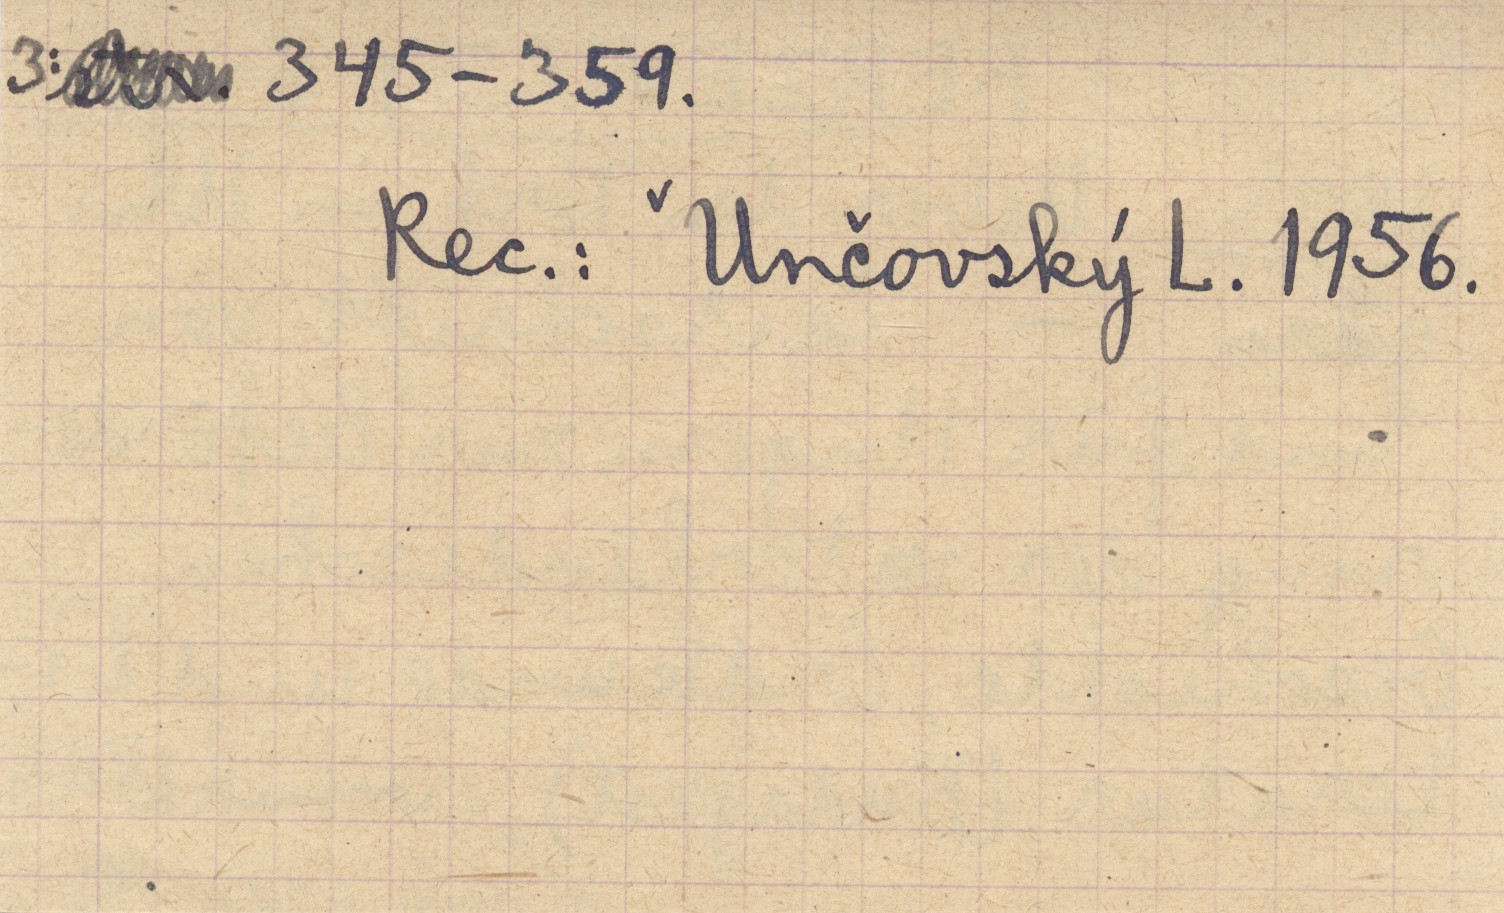 3: 345-359.
Rec.: ˇUnčovský L. 1956.